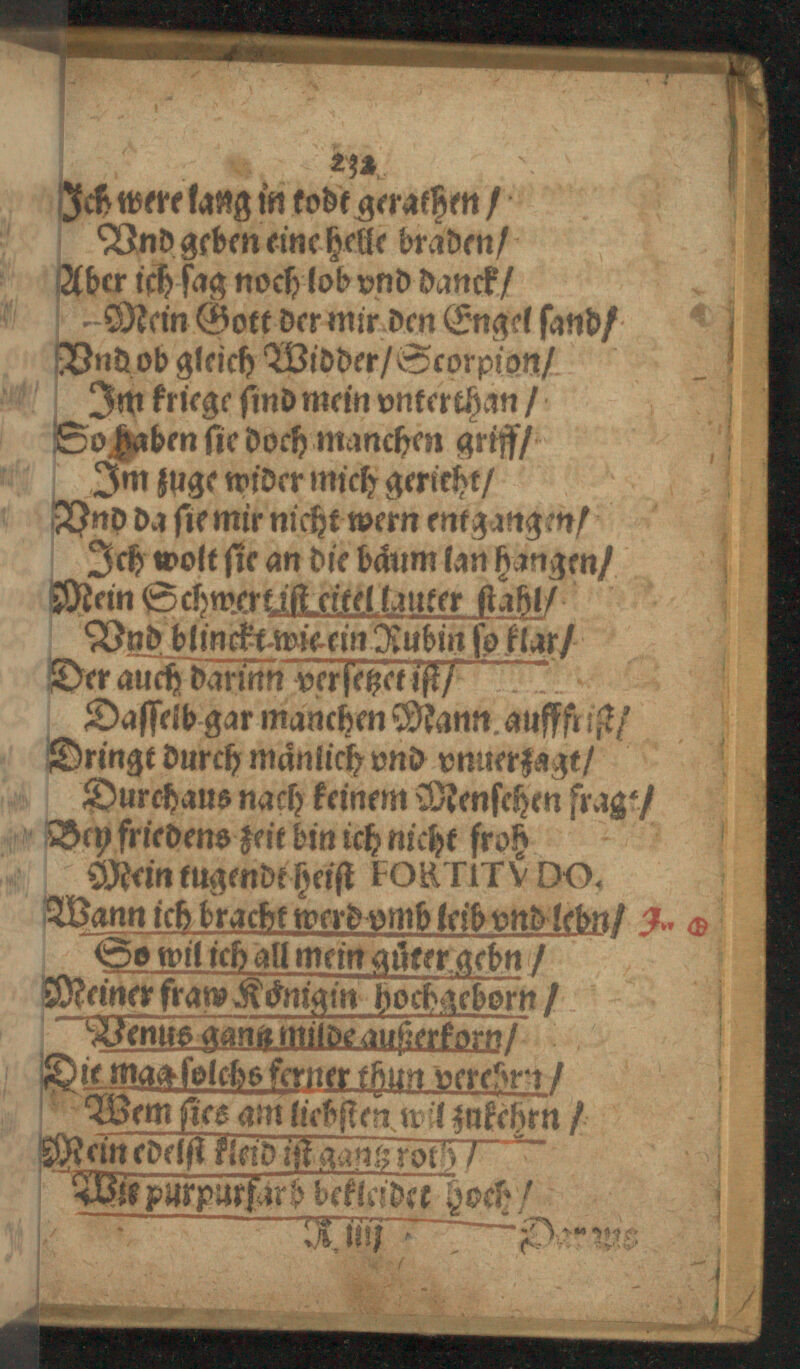 232
Ich were lang in todt gerathen /
Vnd geben eine helle braden/
Aber ich ſag noch lob vnd danck/
Mein Gott der mir den Engel ſand/
Vnd ob gleich Widder/ Scorpion/
Im kriege ſind mein vnterthan /
So haben ſie doch manchen griff/
Im zuge wider mich gericht/
Vnd da ſie mir nicht wern entgangen/
Ich wolt ſie an die bäum lan hangen/
Mein Schwert iſt eitel lauter ſtahl/
Vnd blinckt wie ein Rubin ſo klar/
Der auch darinn verſetzet iſt/
Daſſelb gar manchen Mann aufffriſt/
Dringt durch mänlich vnd vnuerzagt/
Durchaus nach keinem Menſchen fragt/
Bey friedens zeit bin ich nicht froh
Mein tugendt heiſt FORTITVDO.
Wann ich bracht werd vmb leib vnd lebn/
So wil ich all mein güter gebn /
Meiner fraw Königin hochgeborn /
Venus gantz milde außerkorn/
Die mag ſolchs ferner thun verehrn /
Wem ſies am liebſten wil zukehrn /
Mein edelſt kleid iſt gantz roth /
Wie purpurfarb bekleidet hoch /
R iiij Daraus